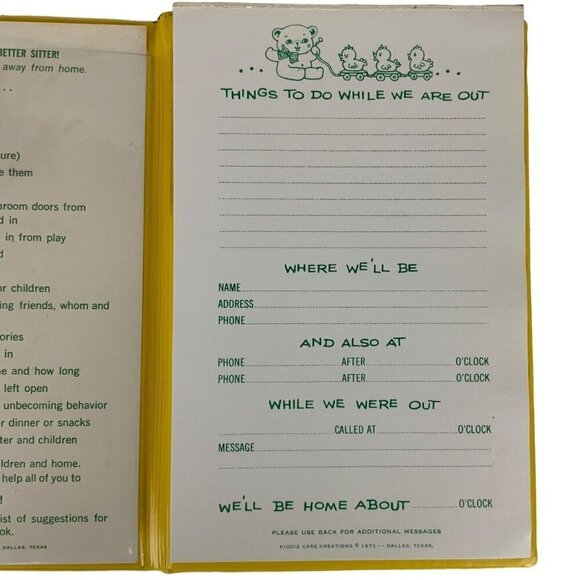 BETTER SITTER!
away from home.
...
ure)
e them
hroom doors from
d in
in from play
d
or children
ing friends, whom and
ories
in
me and how long
left open
unbecoming behavior
er dinner or snacks
tter and children
ildren and home.
help all of you to
!
ist of suggestions for
ok.
DALLAS, TEXAS
THINGS TO DO WHILE WE ARE OUT
WHERE WE'LL BE
NAME
ADDRESS
PHONE
AND ALSO AT
PHONE AFTER O'CLOCK
PHONE AFTER O'CLOCK
WHILE WE WERE OUT
CALLED AT O'CLOCK
MESSAGE
WE'LL BE HOME ABOUT O'CLOCK
PLEASE USE BACK FOR ADDITIONAL MESSAGES
KIDDIE KARE KREATIONS © 1973 — DALLAS, TEXAS,